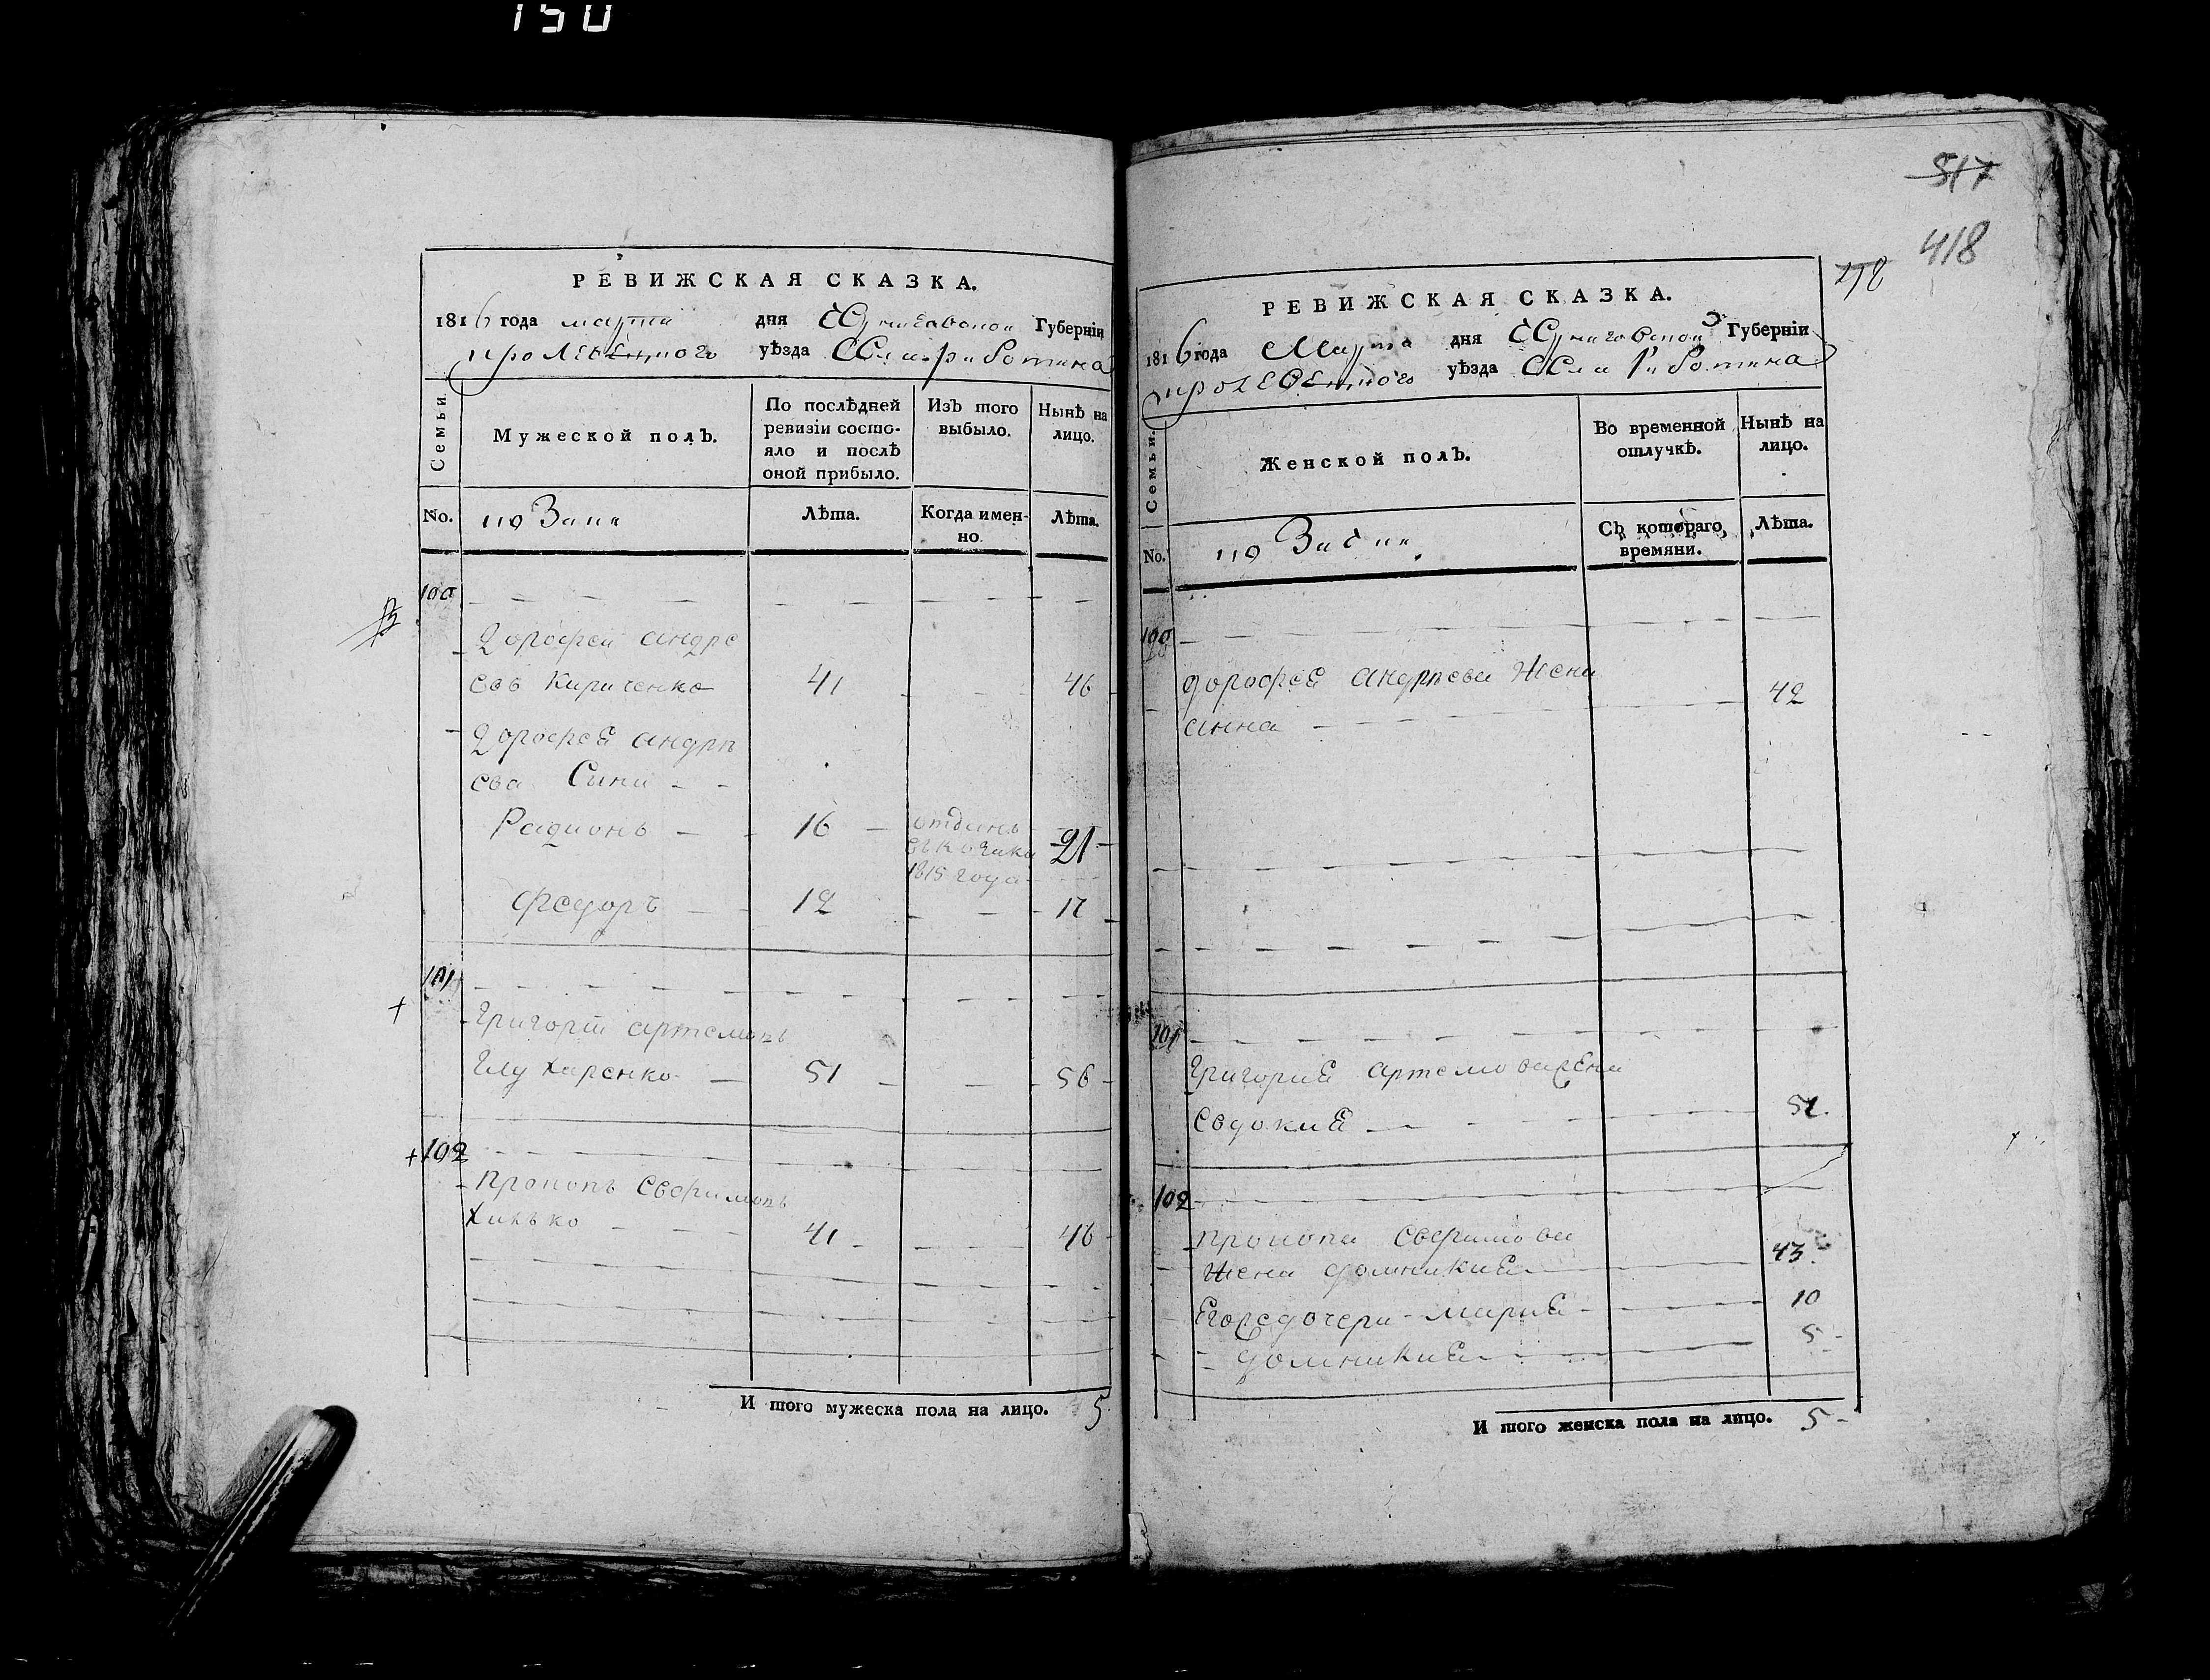 150
РЕВИЖСКАЯ СКАЗКА.
1816 года марта дня Черниговской Губерніи
кролевецкого уѣзда
Семьи.
Мужеской полъ.
По послѣдней ревизіи состо-
яло и послѣ
оной прибыло.
Изъ того
выбыло.
Нынѣ на
лицо.
No.
Лѣта.
Когда имен-
но.
Лѣта.
100
Дорофей андре
евъ Кириченко 41 46
Дорофея андрѣ
ева Сыни
Радионъ 16 отданъ 21
1815 года
Федоръ 12 17
101
Григорій артемовъ
Глухаренко 51 56
102
Прокопъ Евфимовъ
Хилько 41 46
И того мужеска пола на лицо. 5
517
418
РЕВИЖСКАЯ СКАЗКА.
1816 года Марта дня Черниговской Губерніи
кролевецкого уѣзда
Семьи.
Женской полъ.
Во временной
отлучкѣ.
Нынѣ на
лицо.
No.
Съ котораго
времяни.
Лѣта.
100
Дорофея андрѣева жена
анна 42
101
Григория артемова жена
Евдокия 51
102
Прокопа Евфимова
жена домникия 43
Его дочери мария 10
домникия 5
И того женска пола на лицо. 5